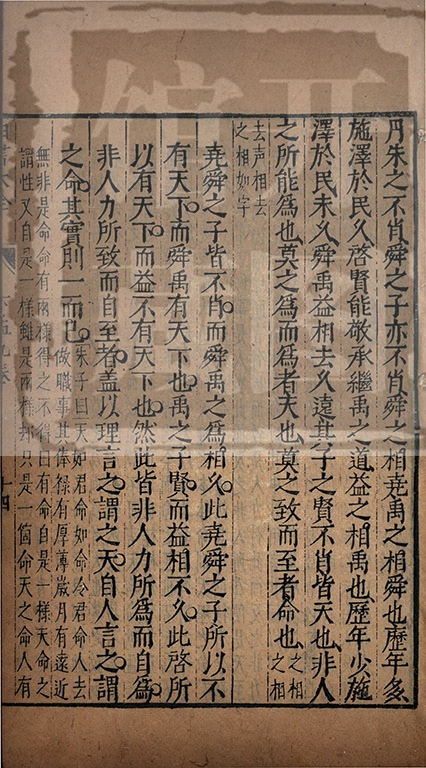 丹朱之不肖舜之子亦不肖舜之相堯禹之相舜也歷年多
施澤於民久啓賢能敬承繼禹之道益之相禹也歷年少施
澤於民未久舜禹益相去久遠其子之賢不肖皆天也非人
之所能爲也莫之爲而爲者天也莫之致而至者命也之相之相
去声相去之相如字
堯舜之子皆不肖而舜禹之爲相久此堯舜之子所以不
有天下而舜禹有天下也禹之子賢而益相不久此啓所
以有天下而益不有天下也然此皆非人力所爲而自爲
非人力所致而自至者蓋以理言之謂之天自人言之謂
之命其實則一而已朱子曰天如君命如命令君命人去
做職事其俸祿有厚薄歲月有遠近
無非是命命有兩樣得之不得曰有命自是一樣天命之
謂性又自是一樣雖是兩樣却只是一個命天之命人有
十四